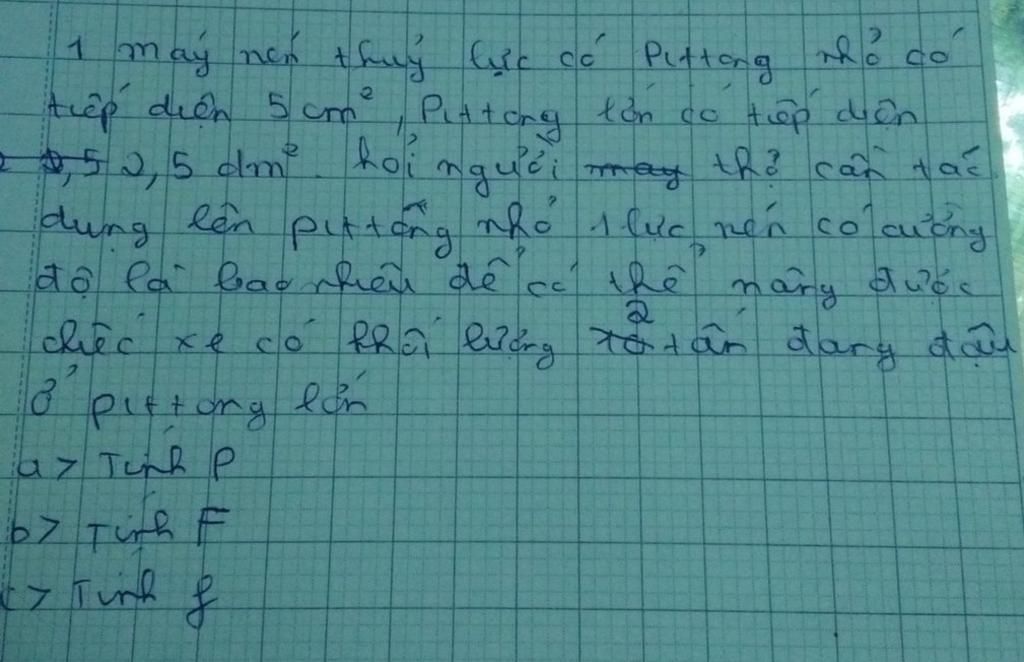 1 máy nén thuỷ lực có Pittong nhỏ có
tiếp diện 5 cm², Pittong lớn có tiếp diện
2,5 dm². hỏi người thợ cần tác
dụng lên pittông nhỏ 1 lực nén có cường
độ là bao nhiêu để có thể nâng được
chiếc xe có khối lượng 2 tấn đang đậu
ở pittong lớn
a> Tính P
b> Tính F
c> Tính f